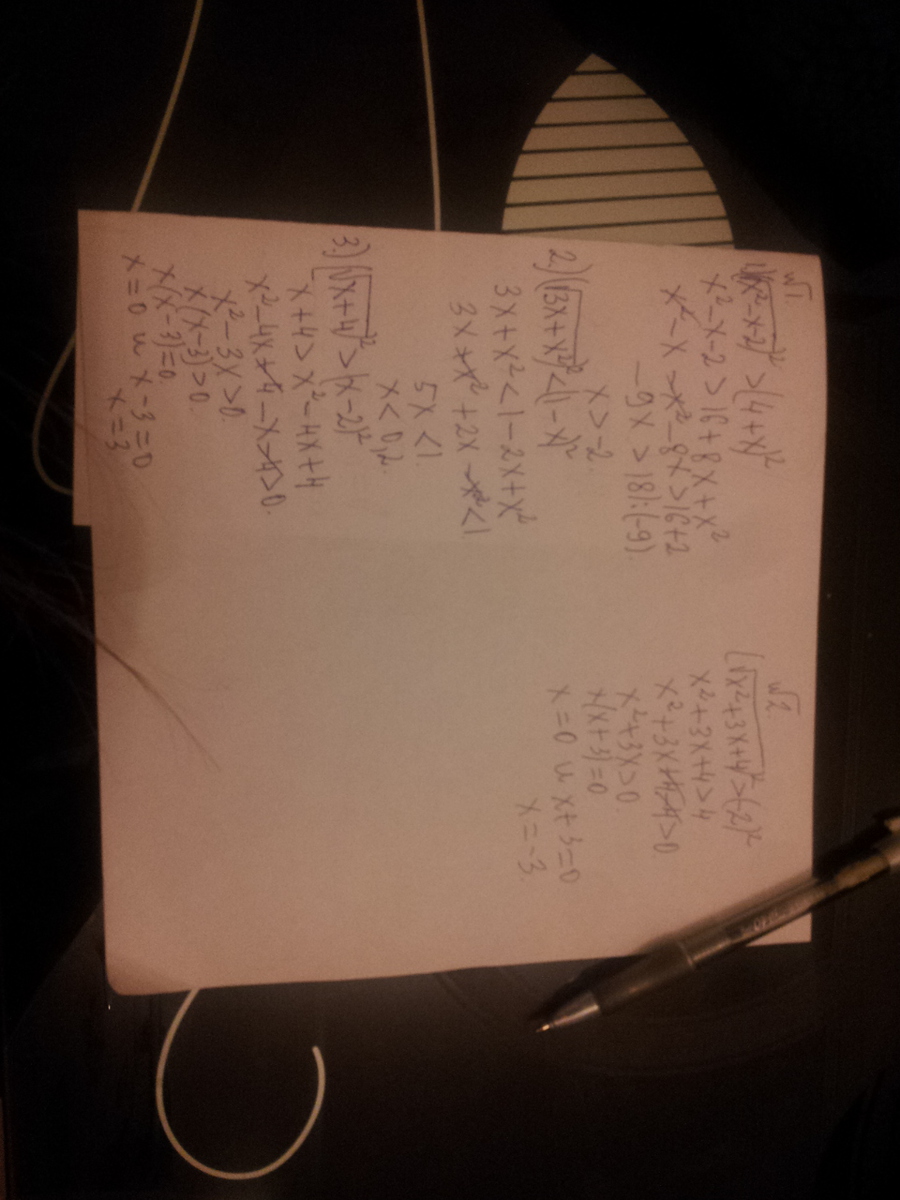 √1.
1)(√x²-x-2)² > (4+x)²
x²-x-2 > 16+8x+x²
x²-x-x²-8x > 16+2
-9x > 18 |:(-9)
x > -2.
2.) (√3x+x²)² < (1-x)²
3x+x² < 1-2x+x²
3x+x²+2x-x² < 1
5x < 1.
x < 0,2.
3.) (√x+4)² > (x-2)²
x+4 > x²-4x+4
x²-4x+4-x-4 > 0.
x²-3x > 0.
x(x-3) > 0.
x(x-3)=0.
x=0 и x-3=0
x=3
√2.
(√x²+3x+4)² > (2)²
x²+3x+4 > 4
x²+3x+4-4 > 0
x²+3x > 0
x(x+3)=0
x=0 и x+3=0
x=-3.